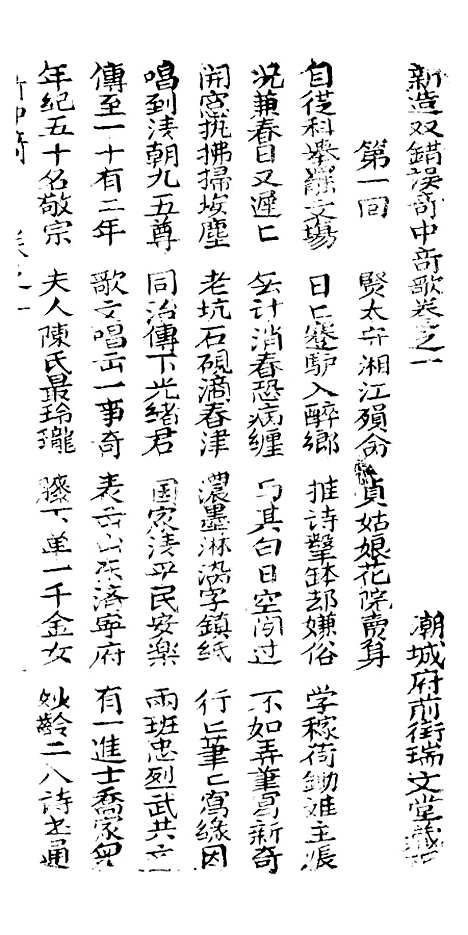 新造双錯误奇中奇歌卷之一 潮城府前街瑞文堂藏板
第一回 賢太守湘江殞命 貞姑娘花院賣身
自從科舉罷文場 日匕蹇馿入醉鄉 推詩擊缽却嫌俗 学稼荷鋤难主張
况兼春日又遲匕 無計消春恐病纏 与其白日空閒过 不如弄筆寫新奇
開窓執拂掃埃塵 老坑石硯滴春津 濃墨淋染字鎮紙 行匕筆匕寫緣因
唱到清朝九五尊 同治傳下光緒君 国家清平民安樂 兩班忠烈武共文
傳至一十有二年 歌文唱出一事奇 表出山东濟寧府 有一進士喬家
年紀五十名敬宗 夫人陳氏最玲瓏 膝下单一千金女 妙齡二八詩書通
奇中奇 卷之一